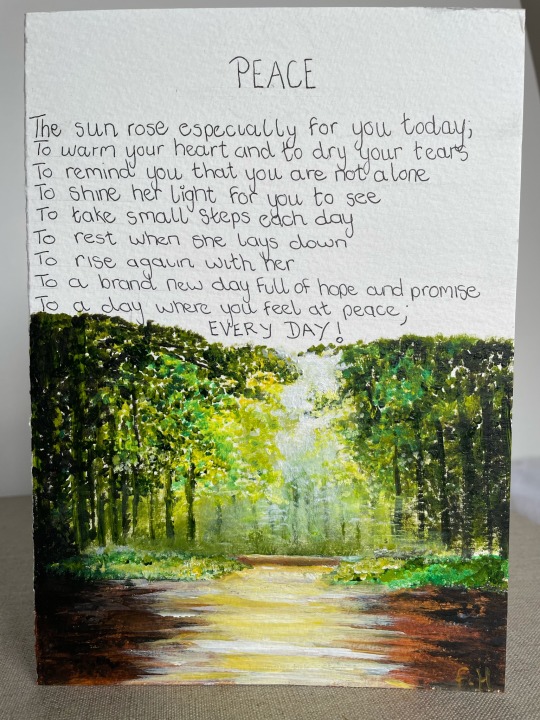 PEACE
The sun rose especially for you today;
To warm your heart and to dry your tears
To remind you that you are not alone
To shine her light for you to see
To take small steps each day
To rest when she lays down
To rise again with her
To a brand new day full of hope and promise
To a day where you feel at peace;
EVERY DAY!